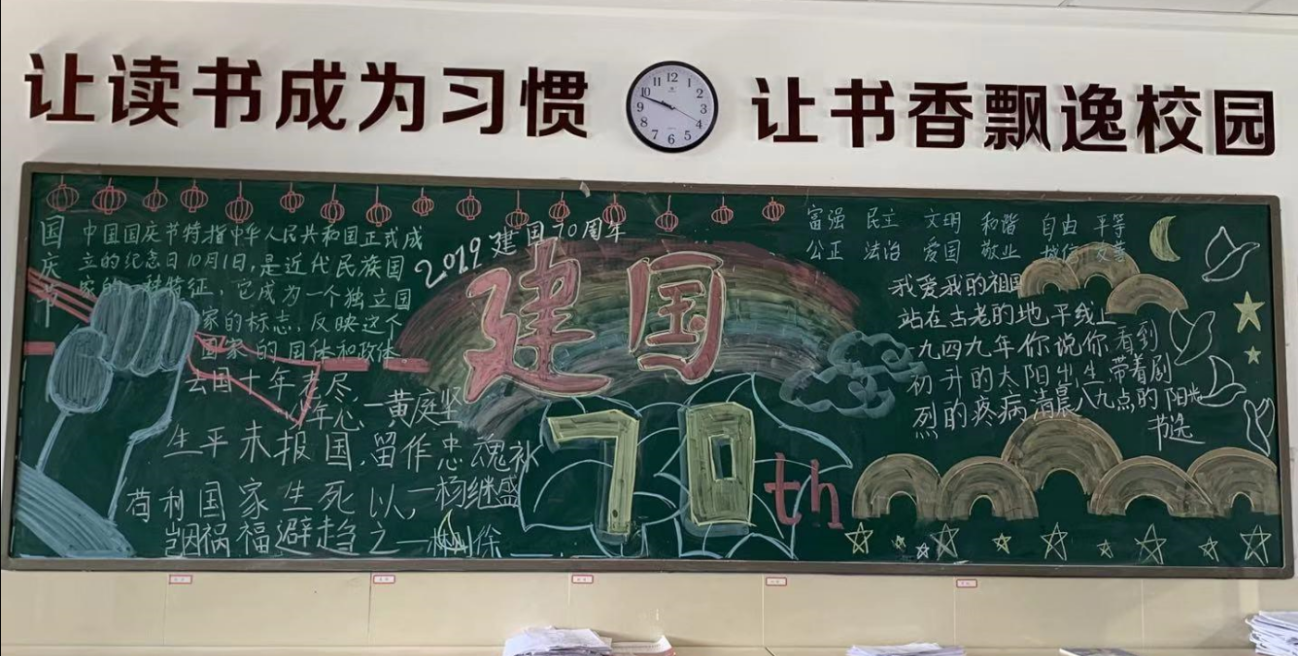 让读书成为习惯
让书香飘逸校园
12
1
2
3
4
5
6
7
8
9
10
11
国庆节
中国国庆节特指中华人民共和国正式成
立的纪念日10月1日,是近代民族国
家的一种特征,它成为一个独立国
家的标志,反映这个
国家的国体和政体
去国十年老尽,
少年心—黄庭坚
生平未报国,留作忠魂补
—杨继盛
苟利国家生死以,
岂因祸福避趋之—林则徐
2019建国70周年
建国
70th
富强 民主 文明 和谐 自由 平等
公正 法治 爱国 敬业 诚信 友善
我爱我的祖国
站在古老的地平线上
一九四九年你说你看到
初升的太阳出生,带着剧
烈的疼痛,清晨八九点的阳光
节选